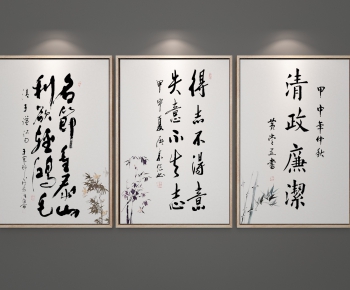 名節重泰山
利欲輕鴻毛
得志不得意
失意不失志
甲申夏
甲申年仲秋
清政廉潔
書